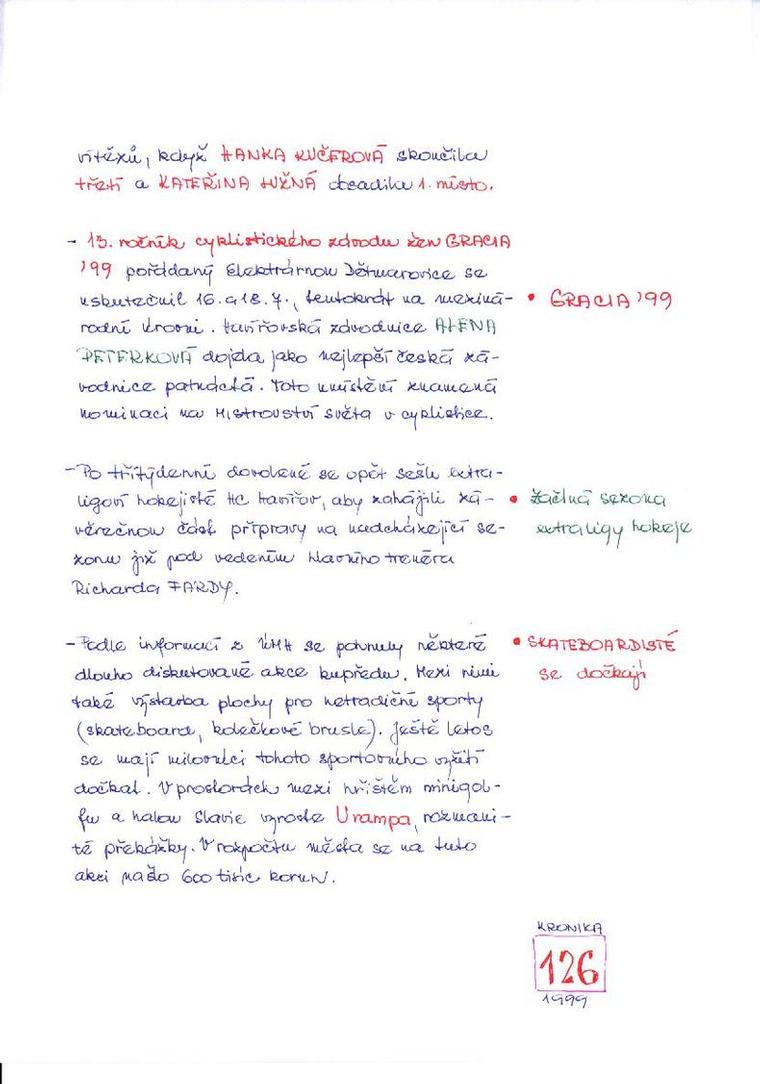 vítězů, když HANKA KUČEROVÁ skončila
třetí a KATEŘINA LUŽNÁ obsadila 1. místo.
- 13. ročník cyklistického závodu žen GRACIA
'99 pořádaný Elektrárnou Dětmarovice se
uskutečnil 16. a 18. 7., tentokrát na meziná-
• GRACIA '99
rodní úrovni. Havířovská závodnice ALENA
PETERKOVÁ dojela jako nejlepší česká zá-
vodnice patnáctá. Toto umístění znamená
nominaci na Mistrovství světa v cyklistice.
- Po třítýdenní dovolené se opět sešli extra-
ligoví hokejisté HC Havířov, aby zahájili zá-
• Začíná sezona
věrečnou část přípravy na nadcházející se-
extraligy hokeje
zonu již pod vedením hlavního trenéra
Richarda FARDY.
- Podle informací z ÚMH se pohnuly některé
• SKATEBOARDISTÉ
dlouho diskutované akce kupředu. Mezi nimi
se dočkají
také výstavba plochy pro netradiční sporty
(skateboard, kolečkové brusle). Ještě letos
se mají milovníci tohoto sportovního vyžití
dočkat. V prostorách mezi hřištěm minigol-
fu a halou Slavie vyroste Urampa, rozmani-
té překážky. V rozpočtu města se na tuto
akci našlo 600 tisíc korun.
KRONIKA
126
1999